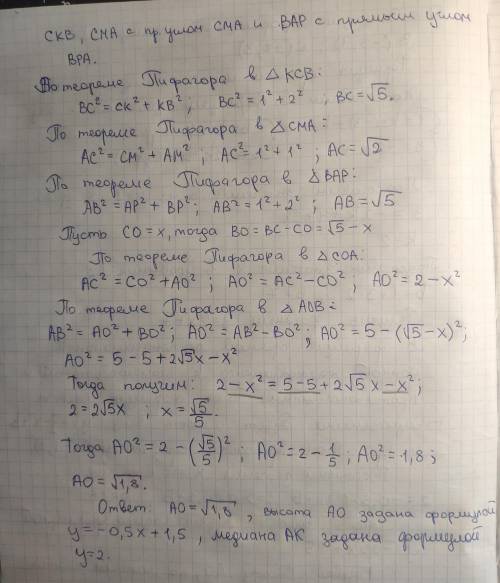 СКВ, СМА с пр. углом СМА и ВАР с прямым углом
ВРА.
По теореме Пифагора в △КСВ:
BC² = CK² + KB² ; BC² = 1² + 2² ; BC = √5.
По теореме Пифагора в △СМА:
AC² = CM² + AM² ; AC² = 1² + 1² ; AC = √2
По теореме Пифагора в △ВАР:
AB² = AP² + BP² ; AB² = 1² + 2² ; AB = √5
Пусть CO = x, тогда BO = BC - CO = √5 - x
По теореме Пифагора в △СОА:
AC² = CO² + AO² ; AO² = AC² - CO² , AO² = 2 - x²
По теореме Пифагора в △АОВ:
AB² = AO² + BO² ; AO² = AB² - BO² ; AO² = 5 - (√5 - x)² ;
AO² = 5 - 5 + 2√5x - x²
Тогда получим: 2 - x² = 5 - 5 + 2√5x - x² ;
2 = 2√5x ; x = √5/5.
Тогда AO² = 2 - (√5/5)² ; AO² = 2 - 1/5 ; AO² = 1,8 ;
AO = √1,8.
Ответ: AO = √1,8 , высота АО задана формулой
y = -0,5x + 1,5 , медиана АК задана формулой
y = 2.